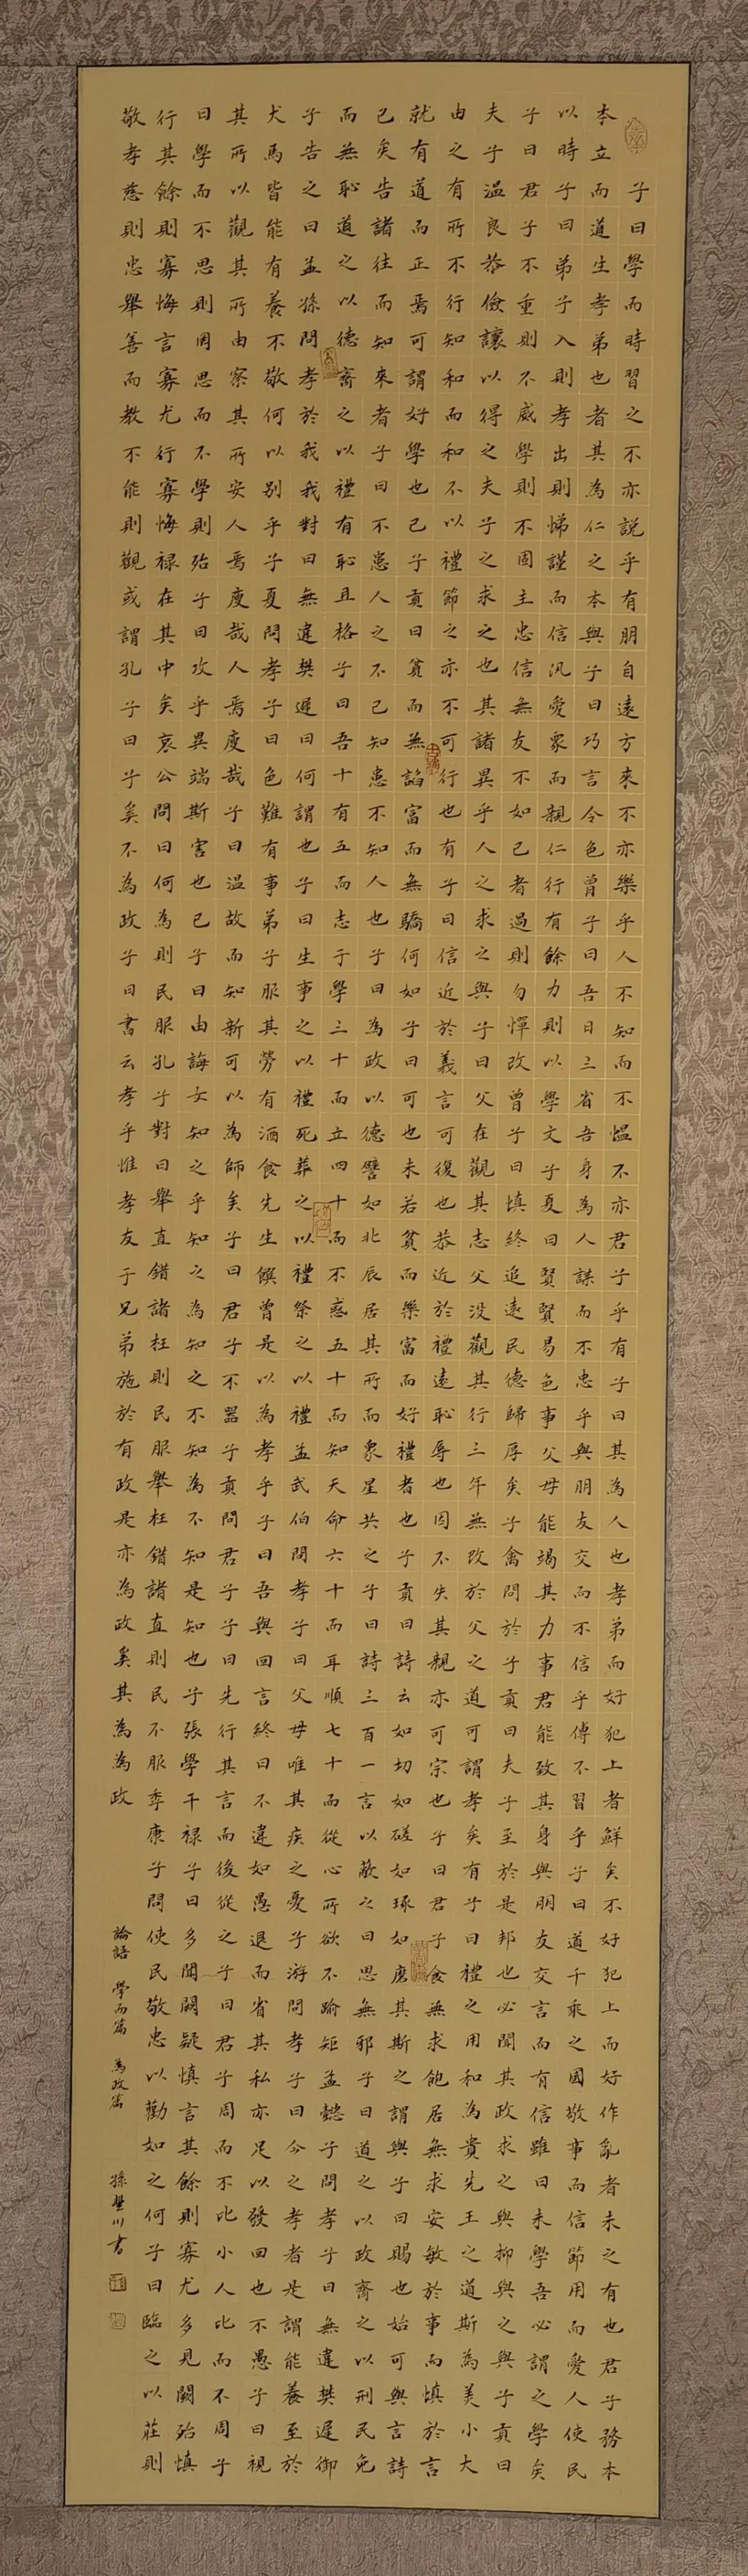 子曰學而時習之不亦說乎有朋自遠方來不亦樂乎人不知而不慍不亦君子乎有子曰其為人也孝弟而好犯上者鮮矣不好犯上而好作亂者未之有也君子務本
本立而道生孝弟也者其為仁之本與子曰巧言令色曾子曰吾日三省吾身為人謀而不忠乎與朋友交而不信乎傳不習乎子曰道千乘之國敬事而信節用而愛人使民
以時子曰弟子入則孝出則悌謹而信汎愛眾而親仁行有餘力則以學文子夏曰賢賢易色事父母能竭其力事君能致其身與朋友交言而有信雖曰未學吾必謂之學矣
子曰君子不重則不威學則不固主忠信無友不如己者過則勿憚改曾子曰慎終追遠民德歸厚矣子禽問於子貢曰夫子至於是邦也必聞其政求之與抑與之與子貢曰
夫子温良恭儉讓以得之夫子之求之也其諸異乎人之求之與子曰父在觀其志父沒觀其行三年無改於父之道可謂孝矣有子曰禮之用和為貴先王之道斯為美小大
由之有所不行知和而和不以禮節之亦不可行也有子曰信近於義言可復也恭近於禮遠恥辱也因不失其親亦可宗也子曰君子食無求飽居無求安敏於事而慎於言
就有道而正焉可謂好學也已子貢曰貧而無諂富而無驕何如子曰可也未若貧而樂富而好禮者也子貢曰詩云如切如磋如琢如磨其斯之謂與子曰賜也始可與言詩
已矣告諸往而知來者子曰不患人之不己知患不知人也子曰為政以德譬如北辰居其所而眾星共之子曰詩三百一言以蔽之曰思無邪子曰道之以政齊之以刑民免
而無恥道之以德齊之以禮有恥且格子曰吾十有五而志于學三十而立四十而不惑五十而知天命六十而耳順七十而從心所欲不踰矩孟懿子問孝子曰無違樊遲御
子告之曰孟孫問孝於我我對曰無違樊遲曰何謂也子曰生事之以禮死葬之以禮祭之以禮孟武伯問孝子曰父母唯其疾之憂子游問孝子曰今之孝者是謂能養至於
犬馬皆能有養不敬何以別乎子夏問孝子曰色難有事弟子服其勞有酒食先生饌曾是以為孝乎子曰吾與回言終日不違如愚退而省其私亦足以發回也不愚子曰視
其所以觀其所由察其所安人焉廋哉人焉廋哉子曰温故而知新可以為師矣子曰君子不器子貢問君子子曰先行其言而後從之子曰君子周而不比小人比而不周子
曰學而不思則罔思而不學則殆子曰攻乎異端斯害也已子曰由誨女知之乎知之為知之不知為不知是知也子張學干祿子曰多聞闕疑慎言其餘則寡尤多見闕殆慎
行其餘則寡悔言寡尤行寡悔祿在其中矣哀公問曰何為則民服孔子對曰舉直錯諸枉則民服舉枉錯諸直則民不服季康子問使民敬忠以勸如之何子曰臨之以莊則
敬孝慈則忠舉善而教不能則觀或謂孔子曰子奚不為政子曰書云孝乎惟孝友于兄弟施於有政是亦為政奚其為為政
論語 學而篇 為政篇 孫川書